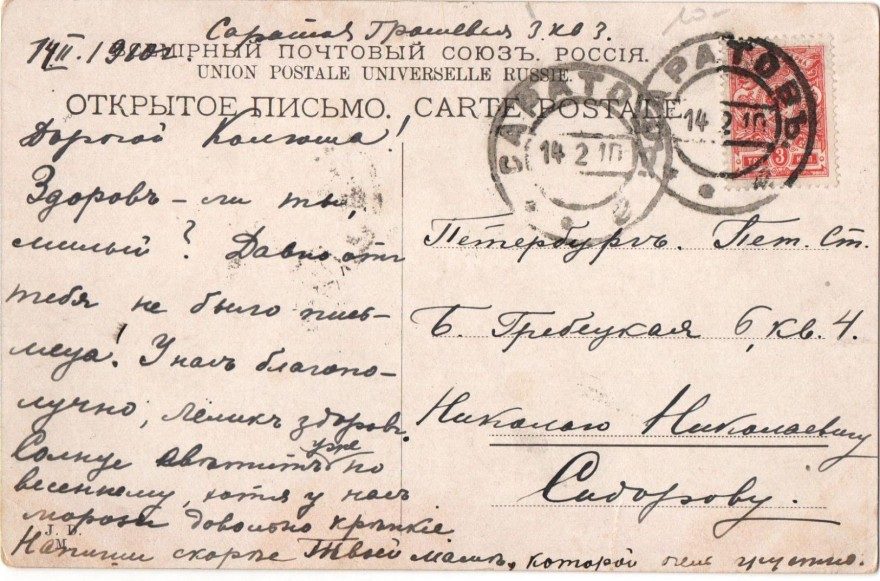 Саратов Грошевая 3 кв 3.
14/II. 1910 г.
ВСЕМІРНЫЙ ПОЧТОВЫЙ СОЮЗЪ. РОССІЯ.
UNION POSTALE UNIVERSELLE RUSSIE.
ОТКРЫТОЕ ПИСЬМО. CARTE POSTALE
САРАТОВЪ
14 2 10
2
САРАТОВЪ
14 2 10
3
Дорогой Колюша!
Здоровъ-ли ты,
милый? Давно отъ
тебя не было пись-
меца! У насъ благопо-
лучно, Лёликъ здоровъ.
Солнце свѣтитъ уже по
весеннему, хотя у насъ
морозы довольно крѣпкіе
Напиши скорѣе Твоей мамѣ, которой грустно.
J. D.
M.
Петербургъ. Пет. Ст.
Б. Гребецкая 6, кв. 4.
Николаю Николаевичу
Сидорову.